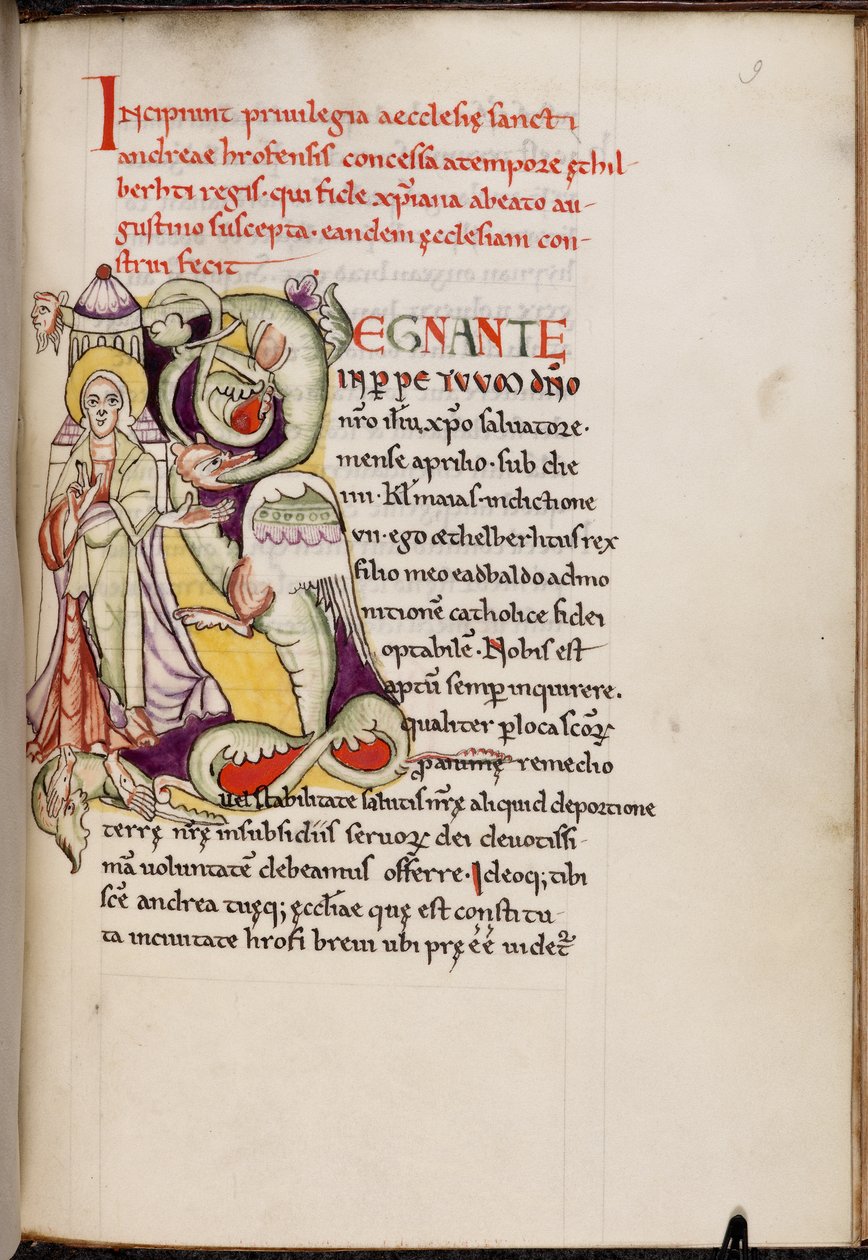 9
Incipiunt priuilegia aecclesię sancti
andreae hrofensis concessa a tempore ęthil-
berhti regis · qui fide xp̄iana a beato au-
gustino suscepta · eandem ęcclesiam con-
strui fecit
REGNANTE
IN P̲P̲ETVVM DN̄O
nr̄o ih̄u xp̄o saluatore ·
mense aprilio · sub die
IIII · Kl̄ maias · indictione
VII · ego æthelberhtus rex
filio meo eadbaldo admo
nitionē catholice fidei
optabilē · Nobis est
aptū semp̲ inquirere .
qualiter p̲ loca sc̄oꝝ
p̲ animę remedio
uel stabilitate salutis nr̄ę aliquid de portione
terrę nr̄ę in subsidiis seruoꝝ dei deuotissi-
mā uoluntatē debeamus offerre · Ideoq; tibi
sc̄e andrea tuęq; ęccl̄iae quę est constitu-
ta in ciuitate hrofi breui ubi pręe͛e͛ uidet᷑